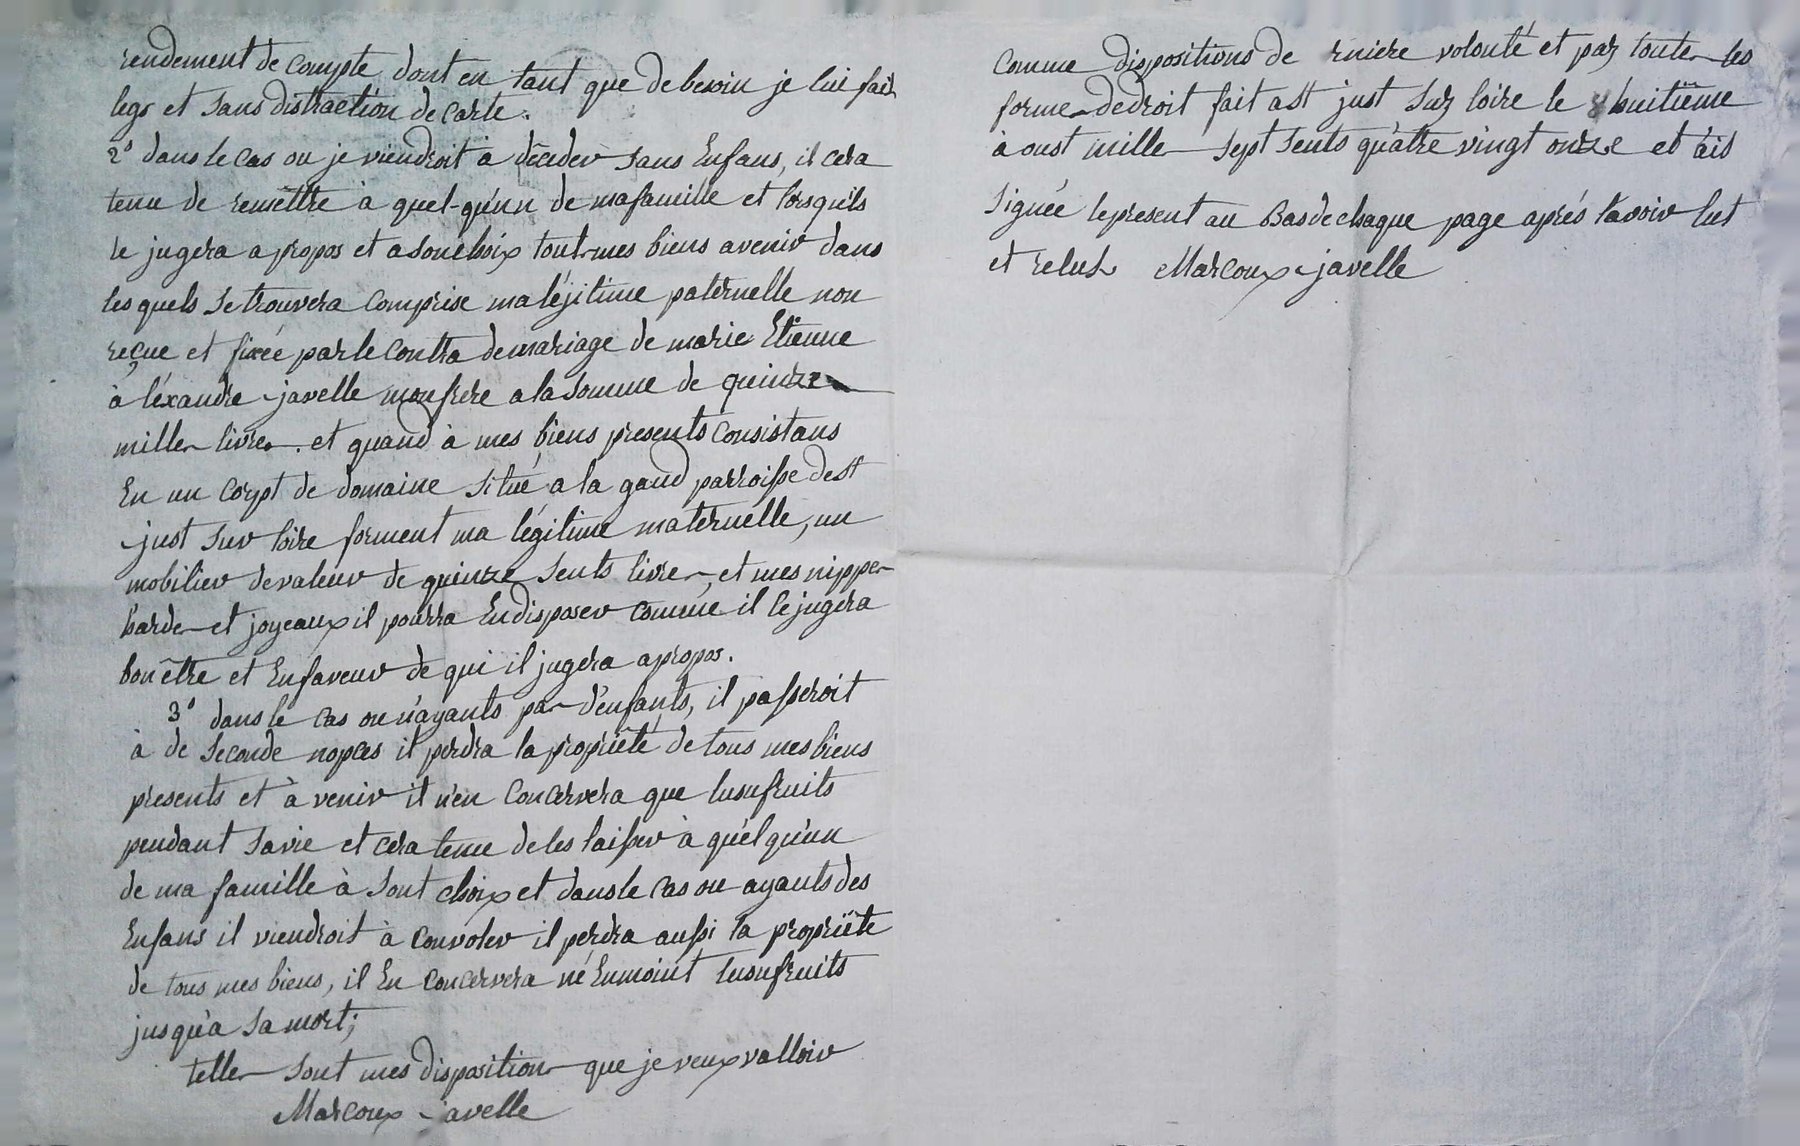 rendement de compte dont en tant que de besoin je lui fait
legs et sans distraction de carte.
2° dans le cas ou je viendroit a décéder sans Enfans, il cera
tenu de remettre à quel-qu'un de ma famille et lorsqu'ils
le jugera a propos et a son choix tout mes biens avenir dans
les quels se trouvera comprise ma légitime paternelle non
reçue et fixée par le contra de mariage de marie Etienne
à léxandre javelle mon frere a la somme de quinze
mille livres. et quand à mes biens presents consistans
En un corpt de domaine situé a la gand parroisse de st
just sur loire forment ma légitime maternelle, un
mobilier de valeur de quinze sents livres et mes nippes
hardes et joyeaux il pourra En disposer comme il le jugera
bon être et En faveur de qui il jugera a propos.
3° dans le cas ou n'ayants pas d'enfants, il passeroit
à de seconde nopces il perdra la propriété de tous mes biens
presents et à venir il n'en concervera que lusufruits
pendant sa vie et cera tenu de les laisser à quelqu'un
de ma famille à sont choix et dans le cas ou ayants des
Enfans il viendroit à convoler il perdra aussi la propriète
de tous mes biens, il En concervera né Enmoint lusufruits
jusqu'a sa mort;
telles sont mes dispositions que je veux valloir
Marcoux javelle
comme dispositions de rniere volonté et par toutes les
formes de droit fait a st just sur loire le 8 huitième
à oust mille sept sents quatre vingt onze et ai
signée le present au Bas de chaque page aprés l'avoir lut
et relut Marcoux javelle